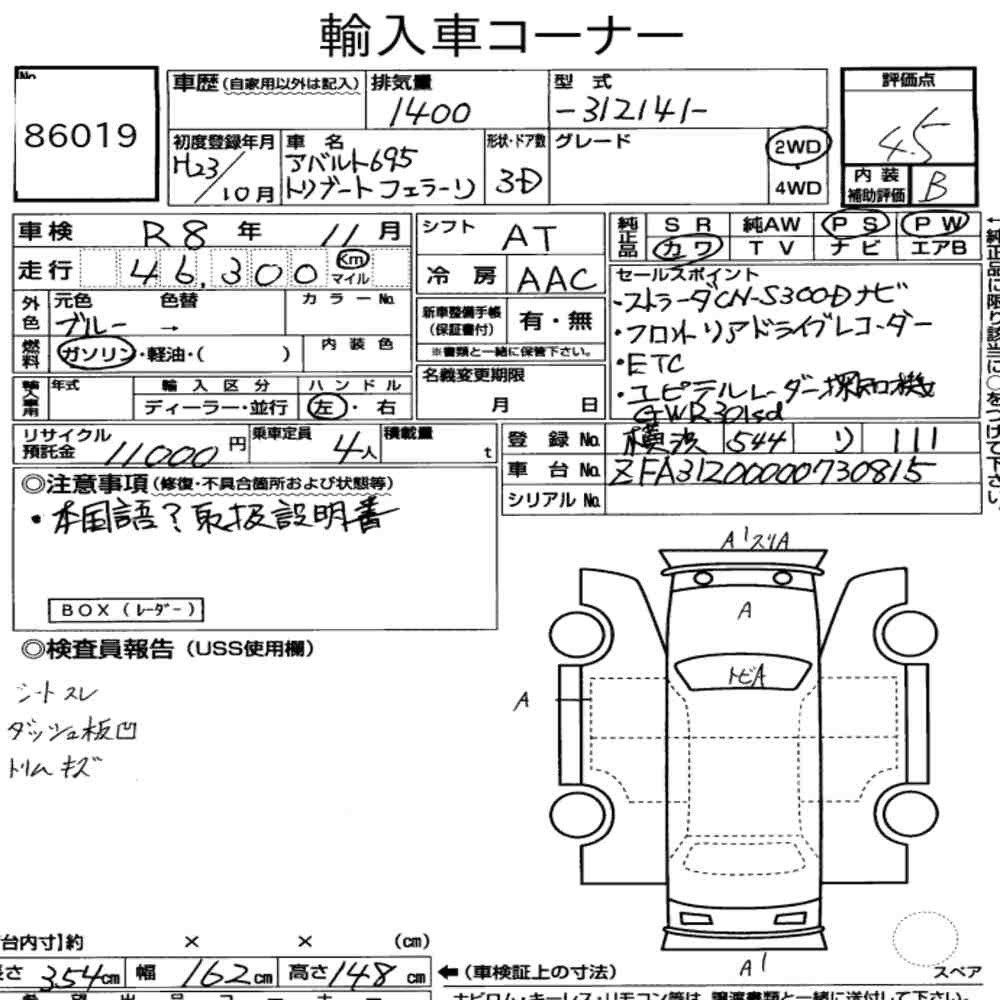 輸入車コーナー
No.
86019
車歴(自家用以外は記入)
排気量
1400
型 式
-312141-
評価点
4.5
初度登録年月
H23/10月
車 名
アバルト695
トリブートフェラーリ
形状・ドア数
3-D
グレード
2WD
4WD
内 装
補助評価
B
車検 R8 年 11 月
走行 46,300 Km マイル
シフト AT
冷 房 AAC
純正品
SR 純AW PS PW
カワ TV ナビ エアB
外色
元色 色替
ブルー →
カラーNo.
燃料
ガソリン・軽油・( )
内 装 色
新車整備手帳
(保証書付)
有・無
※書類と一緒に保管下さい。
セールスポイント
・ストラーダCN-S300Dナビ
・フロントリアドライブレコーダー
・ETC
・ユピテルレーダー探知機
GWR301sd
輸入車用
年式
輸 入 区 分
ディーラー・並行
ハ ン ド ル
左・右
名義変更期限
月 日
リサイクル
預託金
11000円
乗車定員
4人
積載量
t
登 録 No. 横浜 544 り 111
車 台 No. ZFA31200000730815
シリアル No.
◎注意事項(修復・不具合箇所および状態等)
・本国語?取扱説明書
BOX(レーダー)
◎検査員報告(USS使用欄)
シートスレ
ダッシュ板凹
トリムキズ
A1スリA
A
トビA
A
A1
スペア
台内寸】約 × × (cm)
長さ 354cm 幅 162cm 高さ 148cm
←(車検証上の寸法)
←純正品に限り該当に○をつけて下さい。